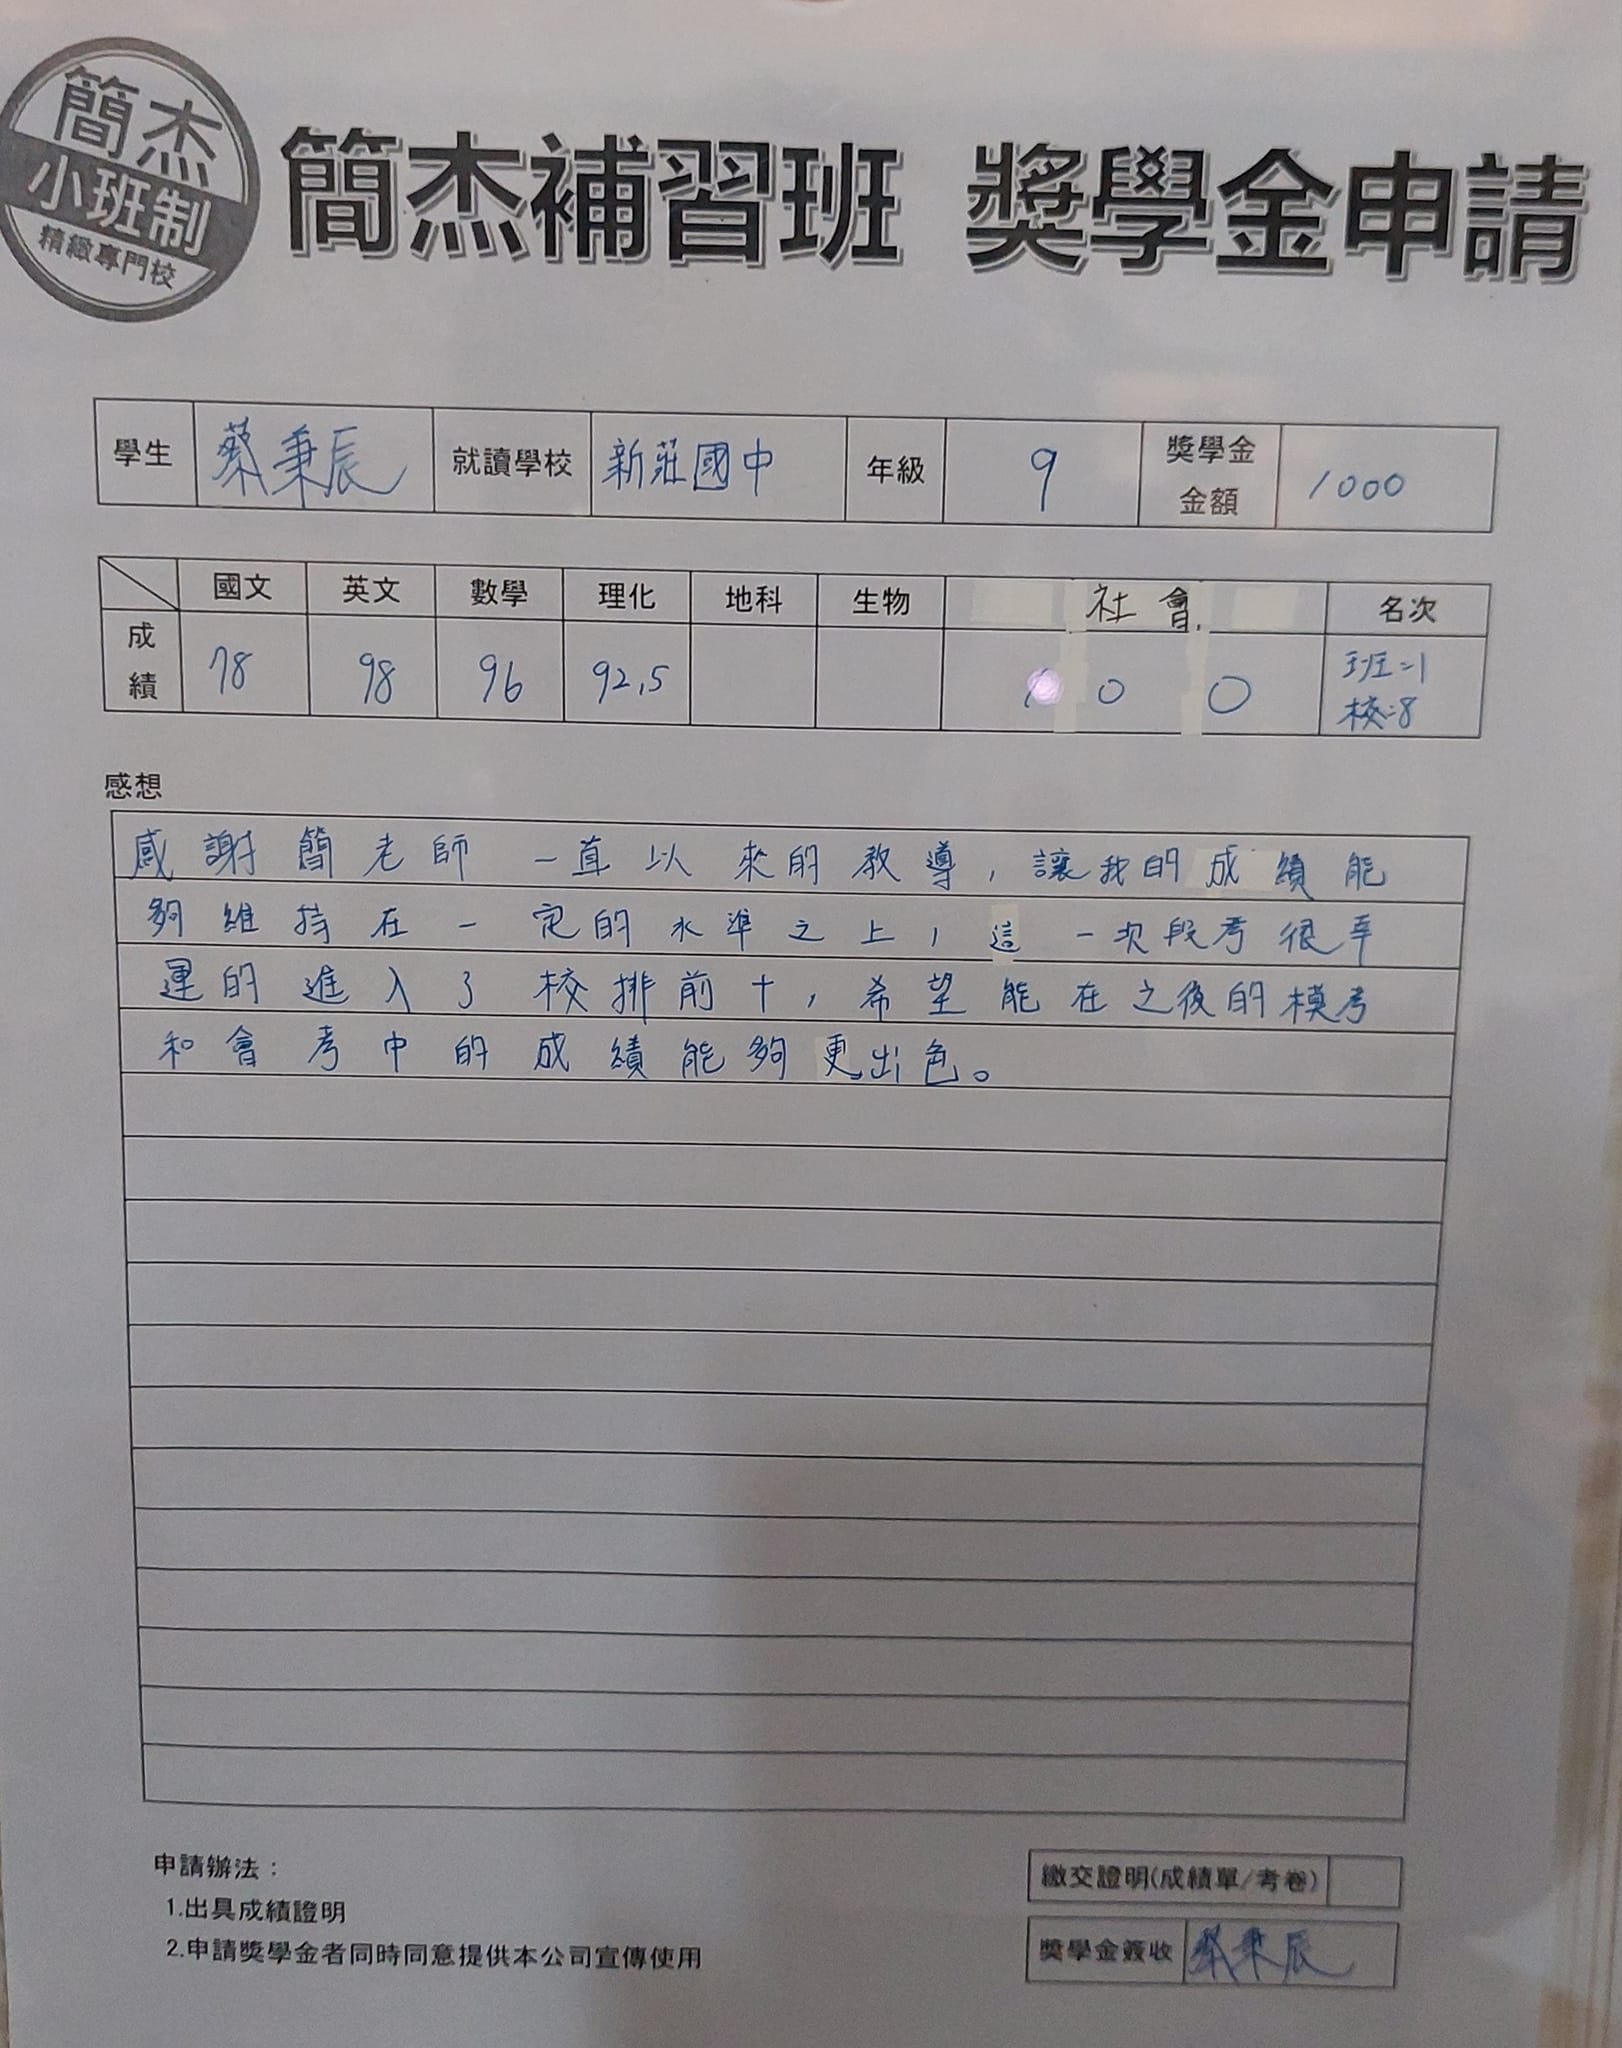 簡杰
小班制
精緻專門校
簡杰補習班 獎學金申請
學生 蔡秉辰 就讀學校 新莊國中 年級 9 獎學金金額 1000
國文 英文 數學 理化 地科 生物 社會 名次
成績 78 98 96 92.5 100 班:1 校:8
感想
感謝簡老師一直以來的教導,讓我的成績能
夠維持在一定的水準之上,這一次段考很幸
運的進入了校排前十,希望能在之後的模考
和會考中的成績能夠更出色。
申請辦法:
1.出具成績證明
2.申請獎學金者同時同意提供本公司宣傳使用
繳交證明(成績單/考卷)
獎學金簽收 蔡秉辰